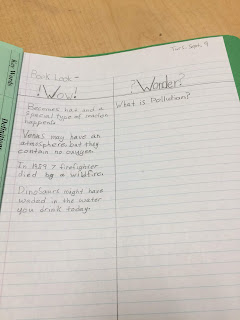 Tues. Sept. 9
Book Look -
!Wow!
Becomes hot and a
special type of reaction
happens.
Venus may have an
atmosphere, but they
contain no oxygen.
In 1989 7 firefighter
died by a wildfire.
Dinosaurs might have
waded in the water
you drink today.
?Wonder?
What is Pollution?
Key Words
Definition